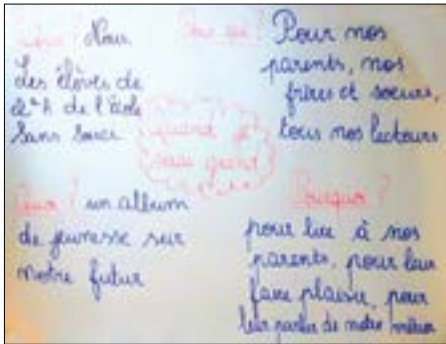 Nous
Les élèves de
l'école
Sans Souci
Pour qui ?
Pour nos
parents, nos
frères et soeurs,
tous nos lecteurs
quand je
serai grand
Quoi ? un album
de jeunesse sur
notre futur
Pourquoi ?
pour lire à nos
parents, pour leur
faire plaisir, pour
leur parler de notre métier